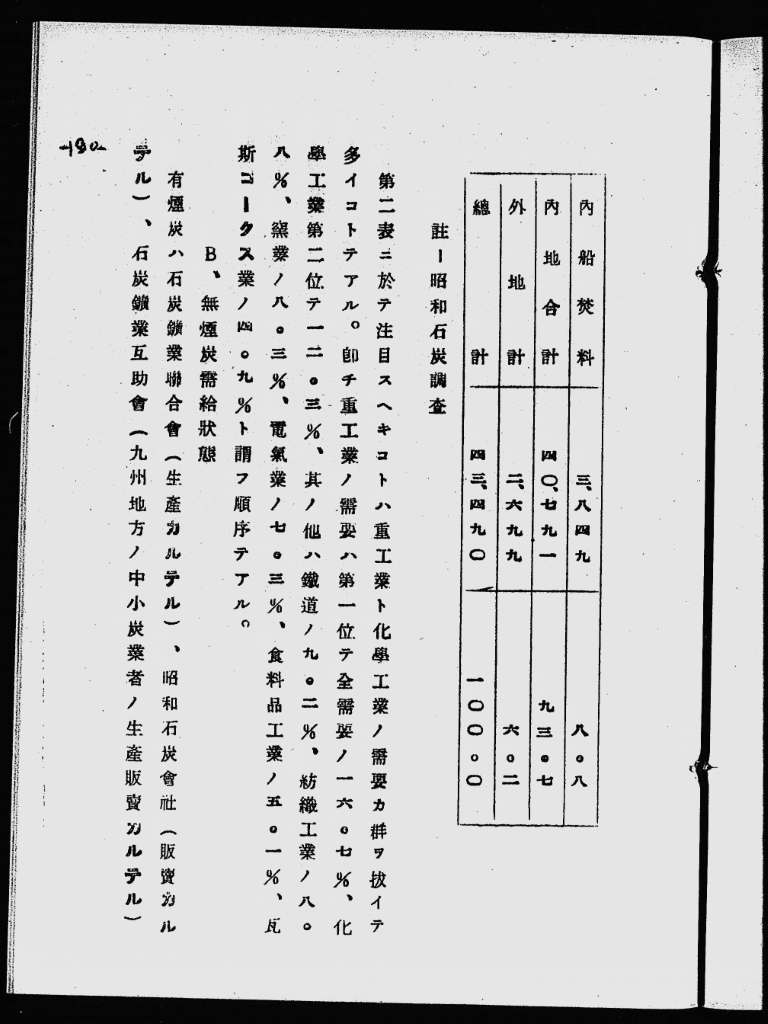 內船焚料 三、八四九 八。八
內地合計 四〇、七九一 九三。七
外地計 二、六九九 六。二
總計 四三、四九〇 一〇〇。〇
註ー昭和石炭調査
第二表ニ於テ注目スヘキコトハ重工業ト化學工業ノ需要カ群ヲ拔イテ
多イコトテアル。卽チ重工業ノ需要ハ第一位テ全需要ノ一六。七%、化
學工業第二位テ一二。三%、其ノ他ハ鐵道ノ九。二%、紡織工業ノ八。
八%、窯業ノ八。三%、電氣業ノ七。三%、食料品工業ノ五。一%、瓦
斯コークス業ノ四。九%ト謂フ順序テアル。
B、無煙炭需給狀態
有煙炭ハ石炭鑛業聯合會(生產カルテル)、昭和石炭會社(販賣カル
テル)、石炭鑛業互助會(九州地方ノ中小炭業者ノ生產販賣カルテル)
-190-